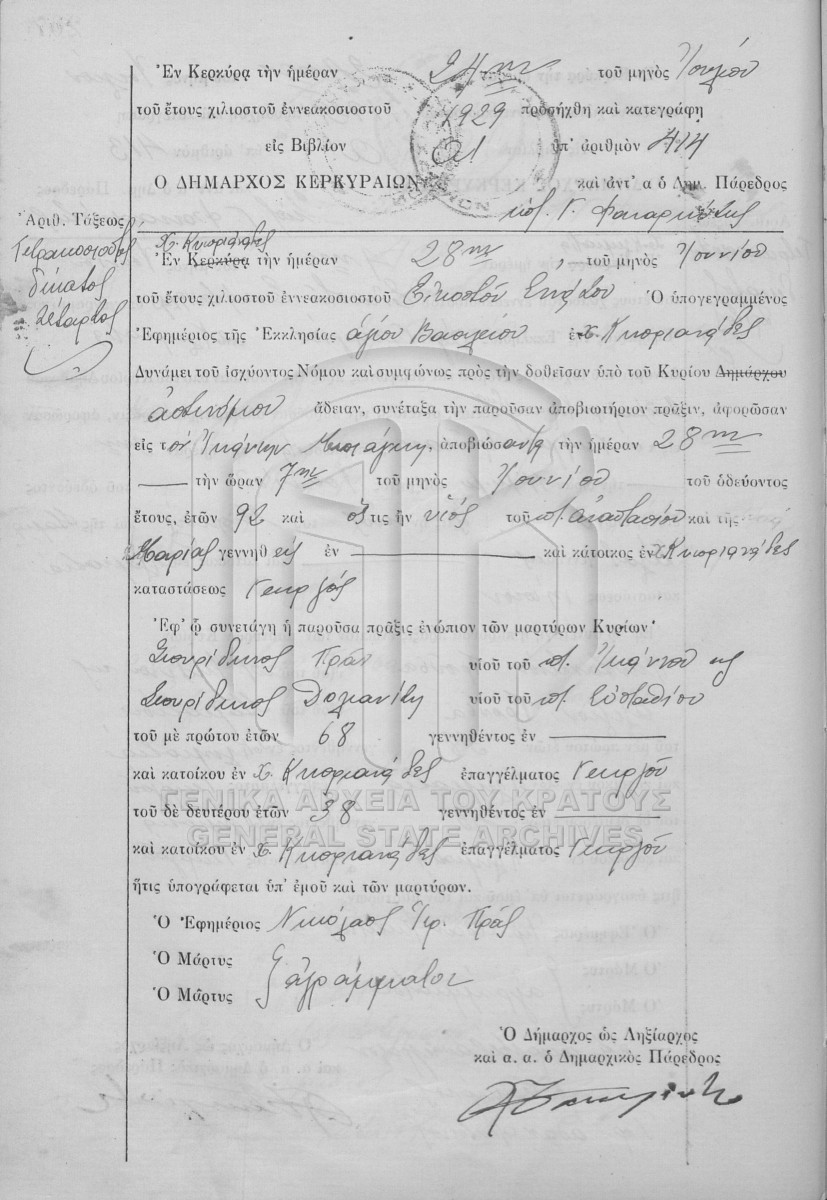 Ἐν Κερκύρᾳ τὴν ἡμέραν 24ην τοῦ μηνὸς Ἰουλίου
τοῦ ἔτους χιλιοστοῦ ἐννεακοσιοστοῦ 1929 προσήχθη καὶ κατεγράφη
εἰς Βιβλίον ὑπ' ἀριθμὸν 414
Ο ΔΗΜΑΡΧΟΣ ΚΕΡΚΥΡΑΙΩΝ καὶ ἀντ' α ὁ Δημ. Πάρεδρος
Ἀριθ. Τάξεως
Τετρακοσιοστὸς
δέκατος
τέταρτος
Χ. Κυπριανάδες
Ἐν Κερκύρᾳ τὴν ἡμέραν 28ην τοῦ μηνὸς Ἰουνίου
τοῦ ἔτους χιλιοστοῦ ἐννεακοσιοστοῦ Εἰκοστοῦ Ἐνάτου Ὁ ὑπογεγραμμένος
Ἐφημέριος τῆς Ἐκκλησίας ἁγίου Βασιλείου ἐν χ. Κυπριανάδες
Δυνάμει τοῦ ἰσχύοντος Νόμου καὶ συμφώνως πρὸς τὴν δοθεῖσαν ὑπὸ τοῦ Κυρίου Δημάρχου
ἀστυνόμου ἄδειαν, συνέταξα τὴν παροῦσαν ἀποβιωτήριον πρᾶξιν, ἀφορῶσαν
εἰς τὸν Ἰωάννην ἀποβιώσαντα τὴν ἡμέραν 28ην
τὴν ὥραν 7ην τοῦ μηνὸς Ἰουνίου τοῦ ὁδεύοντος
ἔτους, ἐτῶν 92 καὶ ὅστις ἦν υἱὸς τοῦ π. Ἀναστασίου καὶ τῆς
Μαρίας γεννηθεὶς ἐν καὶ κάτοικος ἐν χ. Κυπριανάδες
καταστάσεως Γεωργὸς
Ἐφ' ᾧ συνετάγη ἡ παροῦσα πρᾶξις ἐνώπιον τῶν μαρτύρων Κυρίων
Σπυρίδωνος Πρᾶν υἱοῦ τοῦ π. Ἰωάννου κς
Σπυρίδωνος Δολιανίτη υἱοῦ τοῦ π. Εὐσταθίου
τοῦ μὲ πρώτου ἐτῶν 68 γεννηθέντος ἐν
καὶ κατοίκου ἐν χ. Κυπριανάδες ἐπαγγέλματος Γεωργοῦ
τοῦ δὲ δευτέρου ἐτῶν 38 γεννηθέντος ἐν
ΓΕΝΙΚΑ ΑΡΧΕΙΑ ΤΟΥ ΚΡΑΤΟΥΣ
GENERAL STATE ARCHIVES
καὶ κατοίκου ἐν χ. Κυπριανάδες ἐπαγγέλματος Γεωργοῦ
ἥτις ὑπογράφεται ὑπ' ἐμοῦ καὶ τῶν μαρτύρων.
Ὁ Ἐφημέριος Νικόλαος Ἱερ. Πρᾶς
Ὁ Μάρτυς
ἀγράμματοι
Ὁ Μάρτυς
Ὁ Δήμαρχος ὡς Ληξίαρχος
καὶ α. α. ὁ Δημαρχικὸς Πάρεδρος